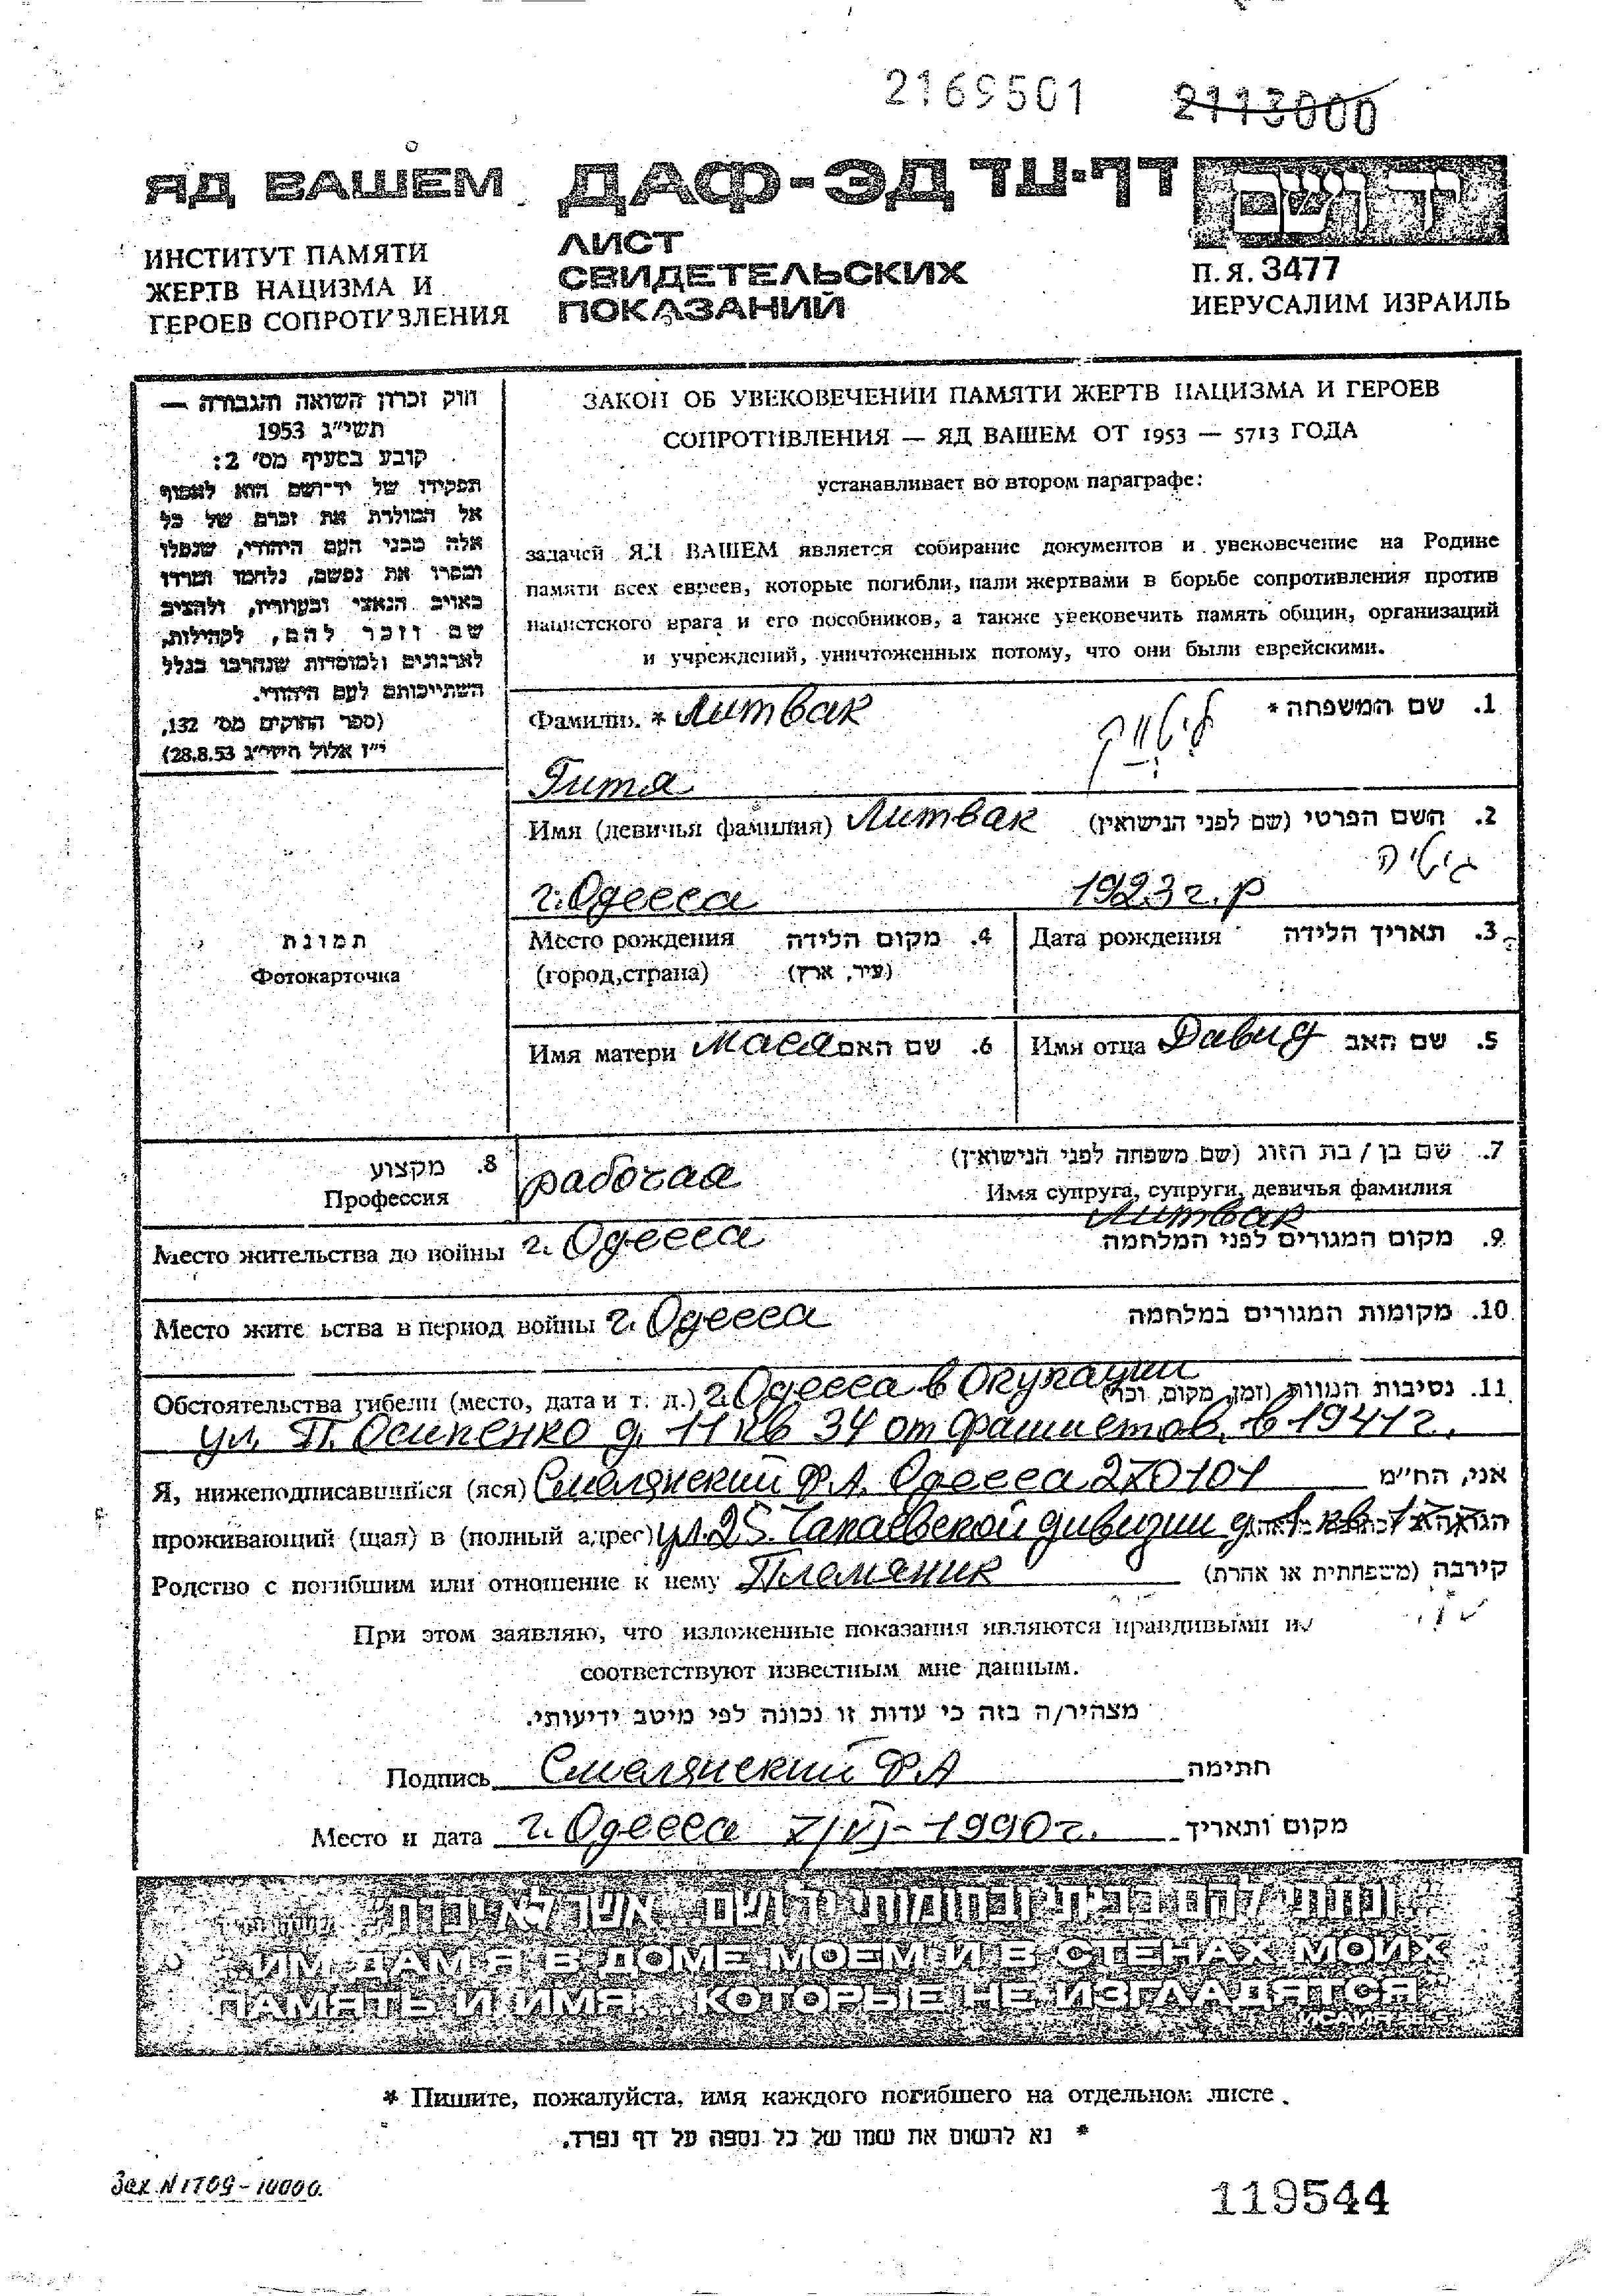 2169501 2113000
ЯД ВАШЕМ ДАФ-ЭД דף-עד יד ושם
ИНСТИТУТ ПАМЯТИ
ЖЕРТВ НАЦИЗМА И
ГЕРОЕВ СОПРОТИВЛЕНИЯ
ЛИСТ
СВИДЕТЕЛЬСКИХ
ПОКАЗАНИЙ
П.Я. 3477
ИЕРУСАЛИМ ИЗРАИЛЬ
חוק זכרון השואה והגבורה —
תשי״ג 1953
קובע בסעיף מס׳ 2:
תפקידו של יד-ושם הוא לאסוף
אל המולדת את זכרם של כל
אלה מבני העם היהודי, שנפלו
ומסרו את נפשם, נלחמו ומרדו
באויב הנאצי ובעוזריו, ולהציב
שם וזכר להם, לקהילות,
לארגונים ולמוסדות שנחרבו בגלל
השתייכותם לעם היהודי.
(ספר החוקים מס׳ 132,
י״ז אלול תשי״ג 28.8.53)
ЗАКОН ОБ УВЕКОВЕЧЕНИИ ПАМЯТИ ЖЕРТВ НАЦИЗМА И ГЕРОЕВ
СОПРОТИВЛЕНИЯ — ЯД ВАШЕМ ОТ 1953 — 5713 ГОДА
устанавливает во втором параграфе:
задачей ЯД ВАШЕМ является собирание документов и увековечение на Родине
памяти всех евреев, которые погибли, пали жертвами в борьбе сопротивления против
нацистского врага и его пособников, а также увековечить память общин, организаций
и учреждений, уничтоженных потому, что они были еврейскими.
Фамилия. * Литвак ליטווק 1. שם המשפחה*
Гитя
Имя (девичья фамилия) Литвак 2. השם הפרטי (שם לפני הנישואין)
גיטיה
г. Одесса 1923 г. р
Место рождения 4. מקום הלידה Дата рождения 3. תאריך הלידה
(город,страна) (עיר, ארץ)
תמונת
Фотокарточка
Имя матери Мася 6. שם האם Имя отца Давид 5. שם האב
8. מקצוע
Профессия рабочая
7. שם בן / בת הזוג (שם משפחה לפני הנישואין)
Имя супруга, супруги, девичья фамилия
Литвак
Место жительства до войны г. Одесса 9. מקום המגורים לפני המלחמה
Место жите ьства в период войны г. Одесса 10. מקומות המגורים במלחמה
Обстоятельства гибели (место, дата и т. д.) г. Одесса в Окупации 11. נסיבות המוות (זמן, מקום, וכו׳)
ул. П. Осипенко д. 11 кв 34 от фашистов. в 1941 г.
Я, нижеподписавшийся (яся) Смалянский Ф.А. Одесса 270101 אני, הח״מ
проживающий (щая) в (полный адрес) ул. 25. Чапаевской дивизии д.
Родство с погибшим или отношение к нему Племяник קירבה (משפחתית או אחרת)
При этом заявляю, что изложенные показания являются правдивыми и
соответствуют известным мне данным.
מצהיר/ה בזה כי עדות זו נכונה לפי מיטב ידיעותי.
Подпись Смалянский Ф.А חתימה
Место и дата г. Одесса 7/VI-1990 г. מקום ותאריך
ונתתי להם בביתי ובחומותי יד ושם... אשר לא יכרת
„ИМ ДАМ Я В ДОМЕ МОЕМ И В СТЕНАХ МОИХ
ПАМЯТЬ И ИМЯ... КОТОРЫЕ НЕ ИЗГЛАДЯТСЯ"
* Пишите, пожалуйста, имя каждого погибшего на отдельном листе.
* נא לרשום את שמו של כל נספה על דף נפרד.
Зак. N 1709-10000.
119544